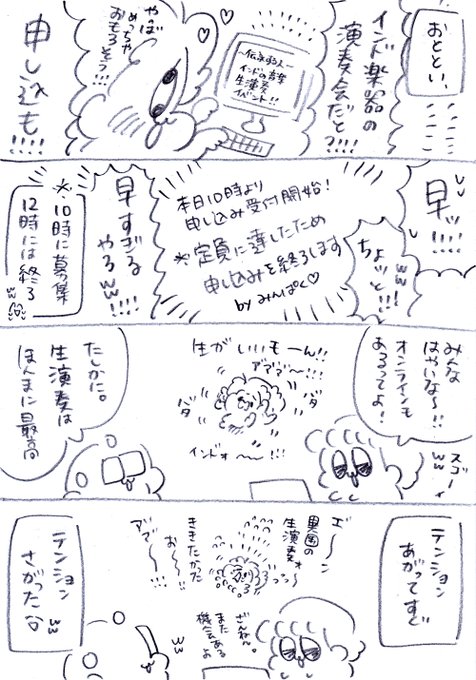 おととい、
インド楽器の
演奏会だと?!!!
〜伝承する人〜
インドの音楽
生演奏
イベント!!
やっば
めっちゃ
おもろそう!!!
申し込も!!!!
早ッ!!!!
ちょッと!!!!
ww
本日10時より
申し込み受付開始!
※定員に達したため
申し込みを終了します
by みんぱく♡
早すぎる
やろww!!!!
※10時に募集
12時には終了
ww
みんな
はやいな〜!!
オンラインも
あるってよ!
スゴーイ
ww
生がいいもーん!!
アアア〜!!!
バタ
バタ
インドォ〜〜!!!
たしかに。
生演奏は
ほんまに最高
テンション
あがってすぐ
エ〜〜ン
異国の
生演奏ォ〜
ききたかった
お〜〜!!!
アア〜
ざんねん。
また
機会ある
よ
ww
テンション
さがった谷
ww